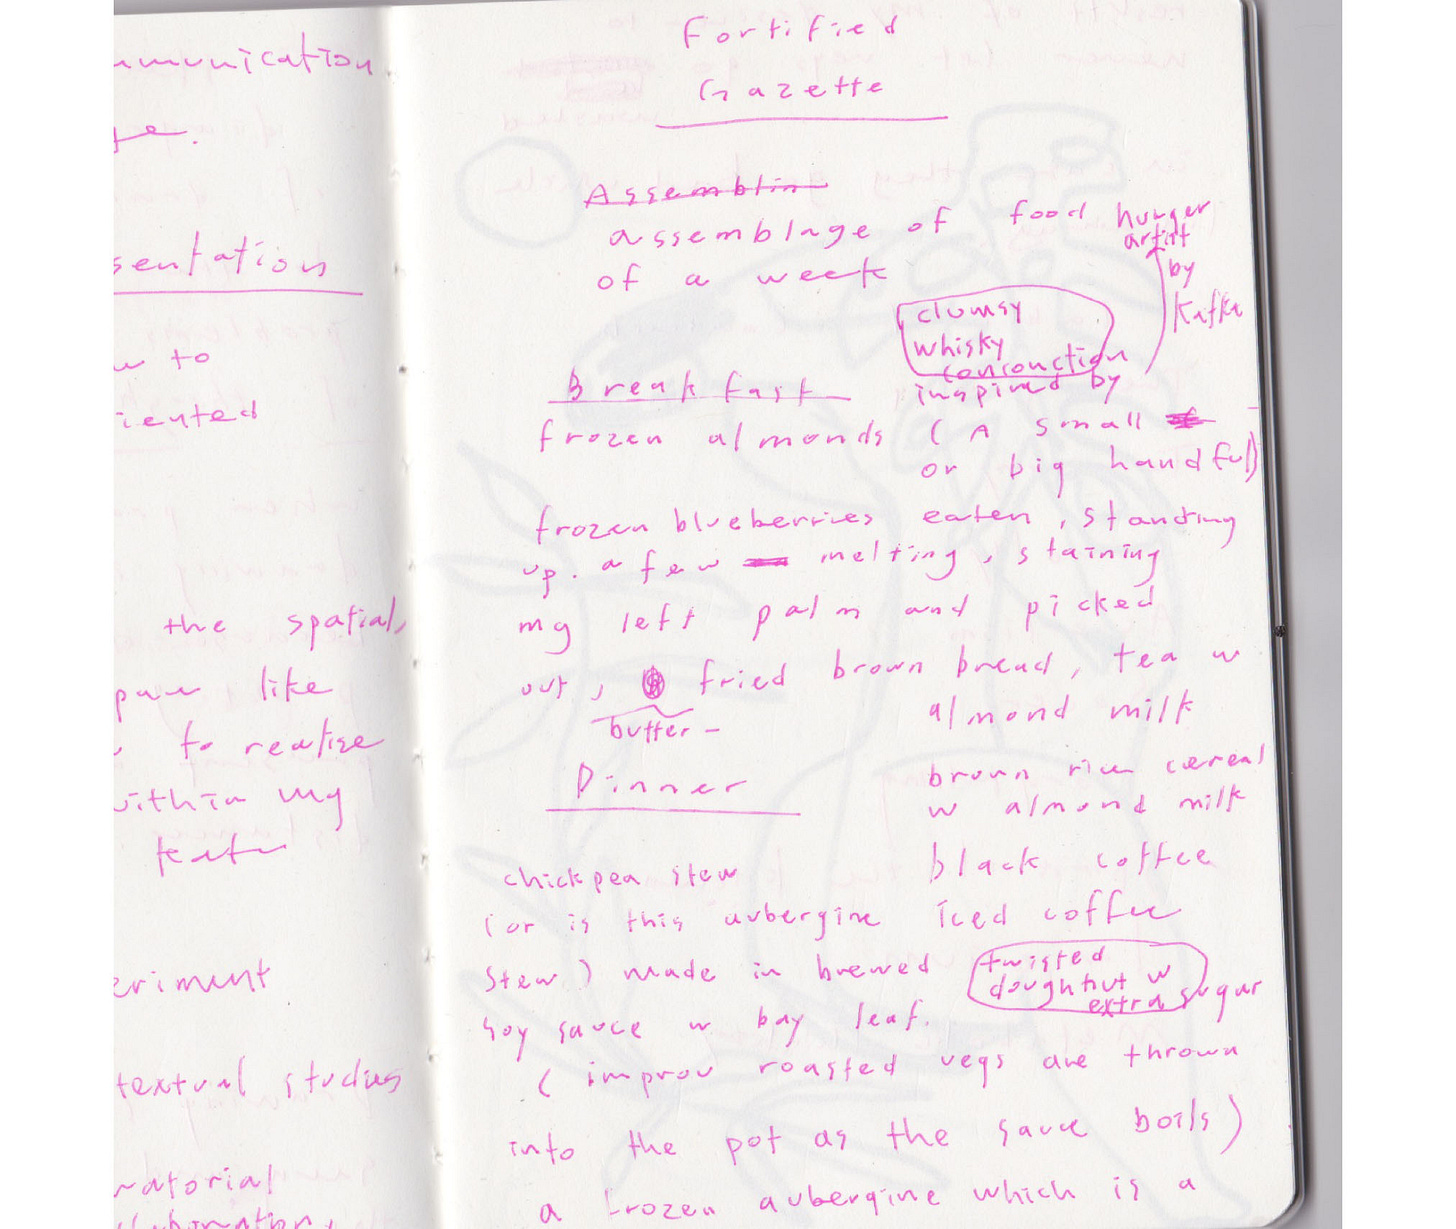 mmunication
te.
sentation
w to
iented
the spatial,
like
to realise
within my
eriment
textual studies
ratorial
Fortified
Gazette
Assemblin
assemblage of food
of a week
hunger
artist
by
Kafka
clumsy
whisky
conconction
inspired by
Breakfast
frozen almonds (A small
or big handful)
frozen blueberries eaten, standing
up. a few melting, staining
my left palm and picked
out, fried brown bread, tea w
butter -
almond milk
brown rice cereal
w almond milk
black coffee
iced coffee
twisted
doughnut w
extra sugar
Dinner
chickpea stew
(or is this aubergine
stew) made in brewed
soy sauce w bay leaf.
( improv roasted vegs are thrown
into the pot as the sauce boils)
a frozen aubergine which is a